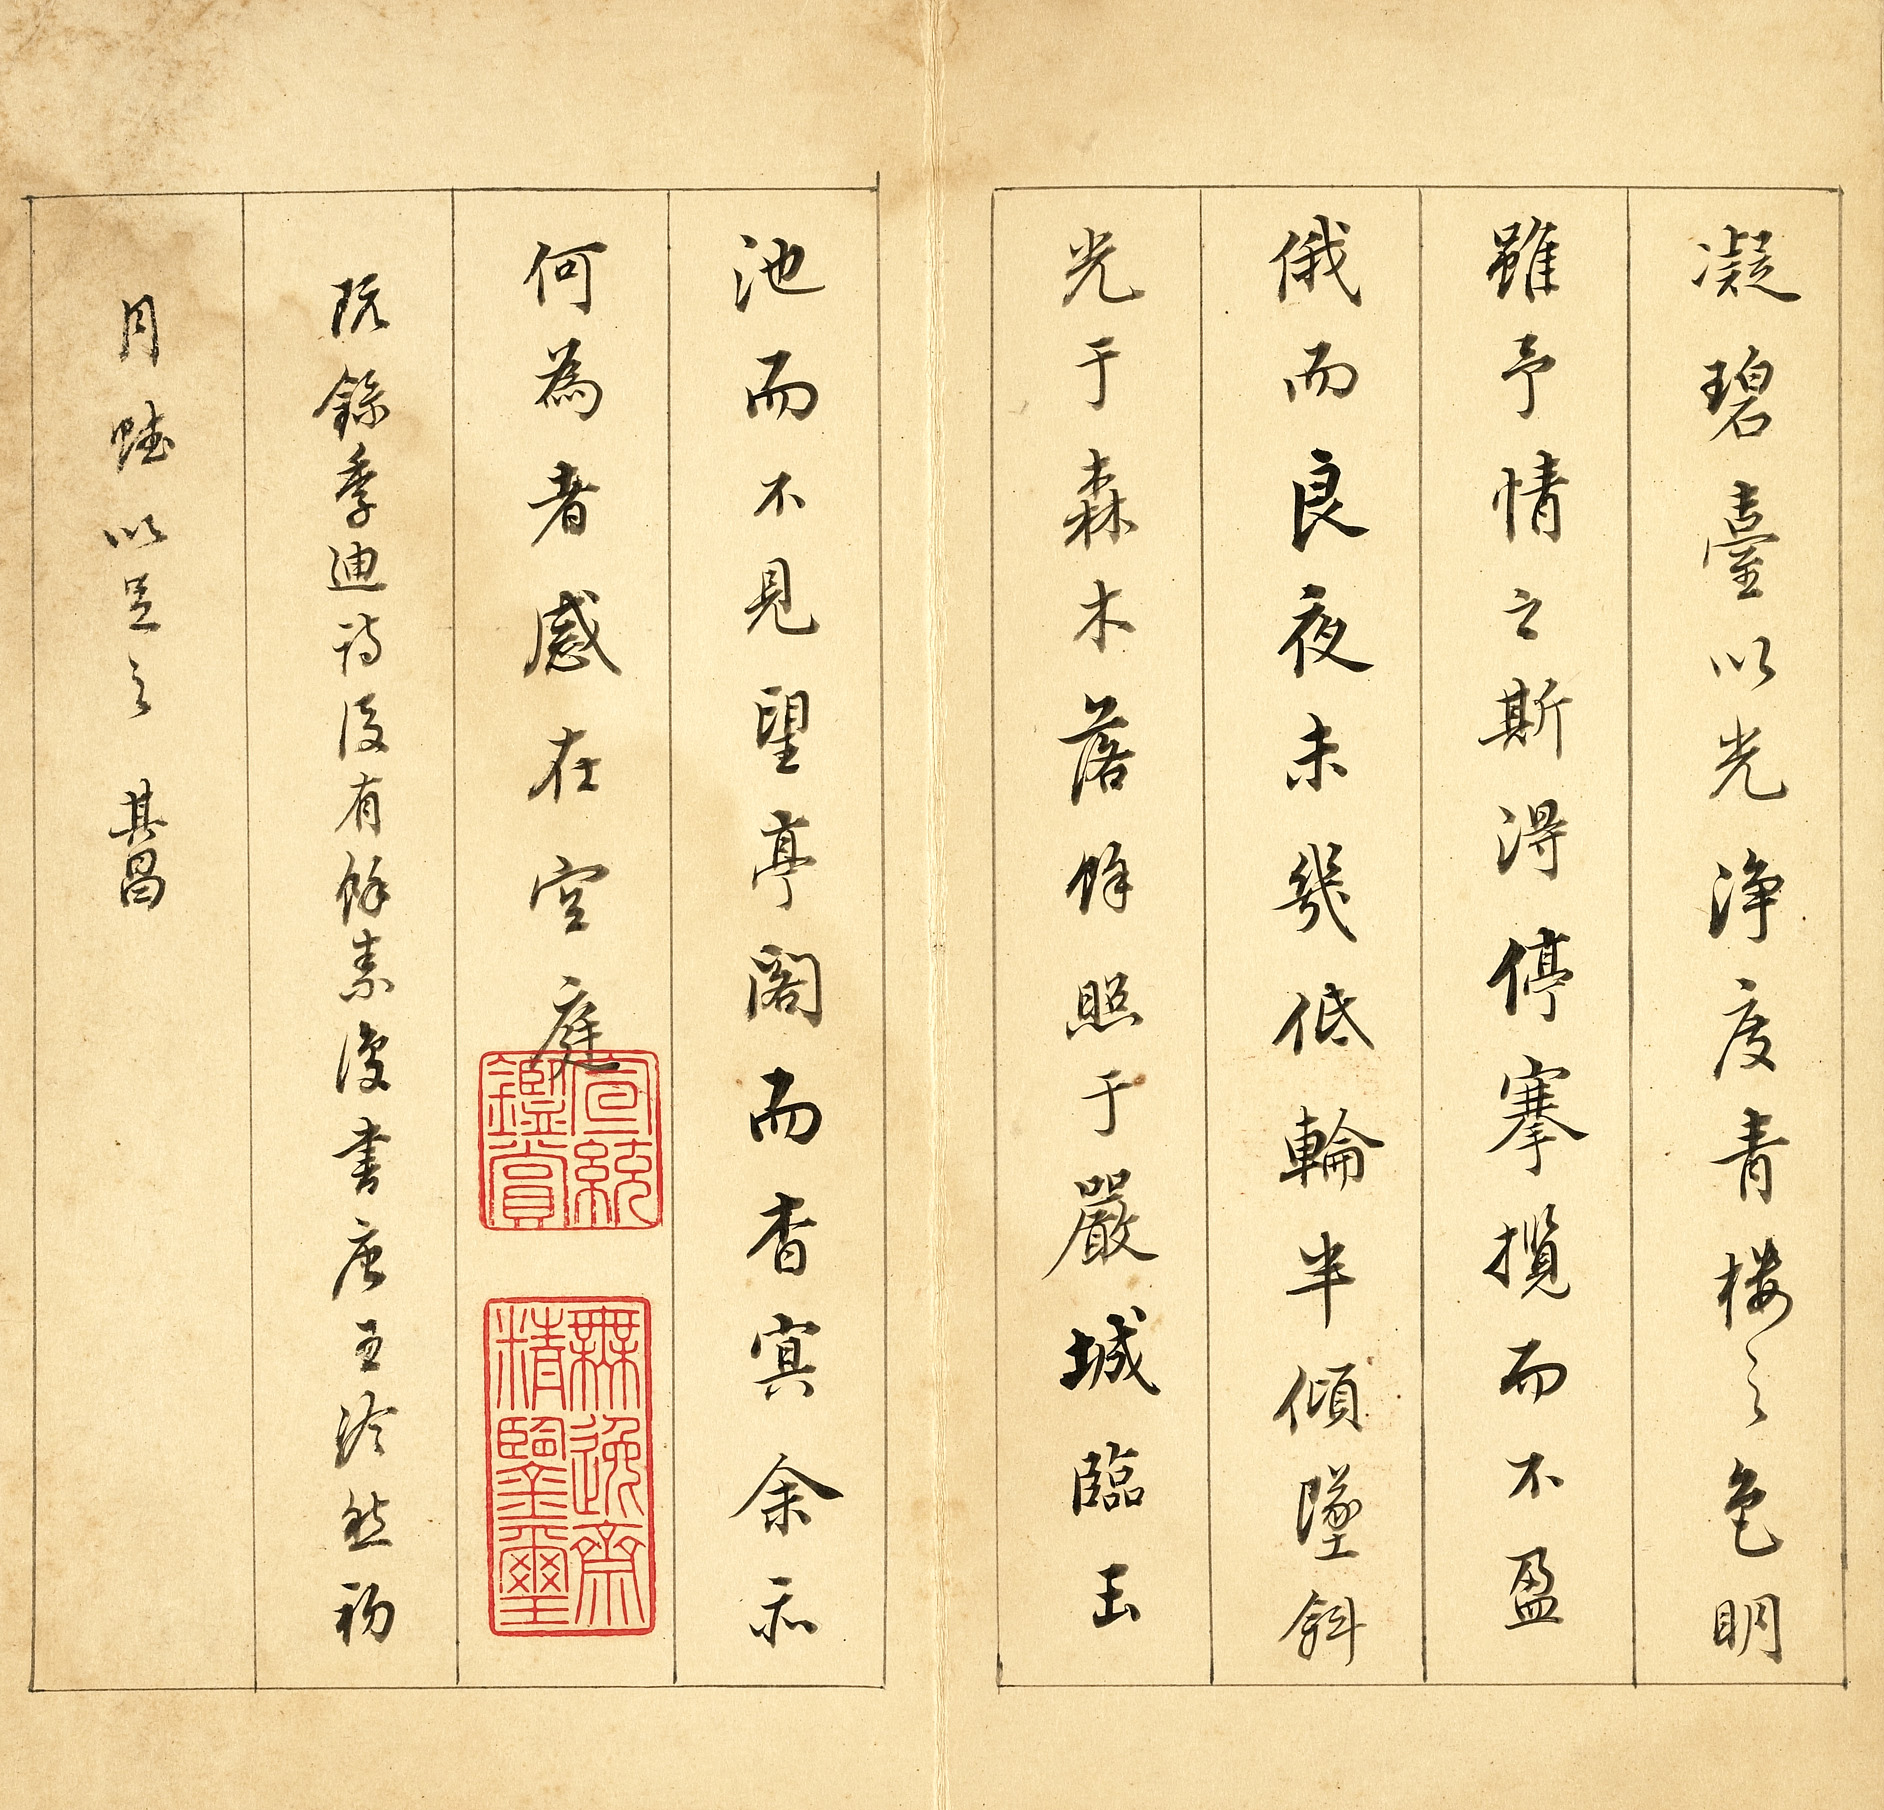 凝碧臺以光淨度青樓之色明
雖予情之斯得停搴攬而不盈
俄而良夜未幾低輪半傾墜斜
光于森木落餘照于嚴城臨玉
池而不見望亭閣而杳冥余亦
何為者感在空庭
既錄季迪詩後有餘素復書唐王泠然初
月賦以足之 其昌
宣統鑑賞
無逸齋精鑒璽